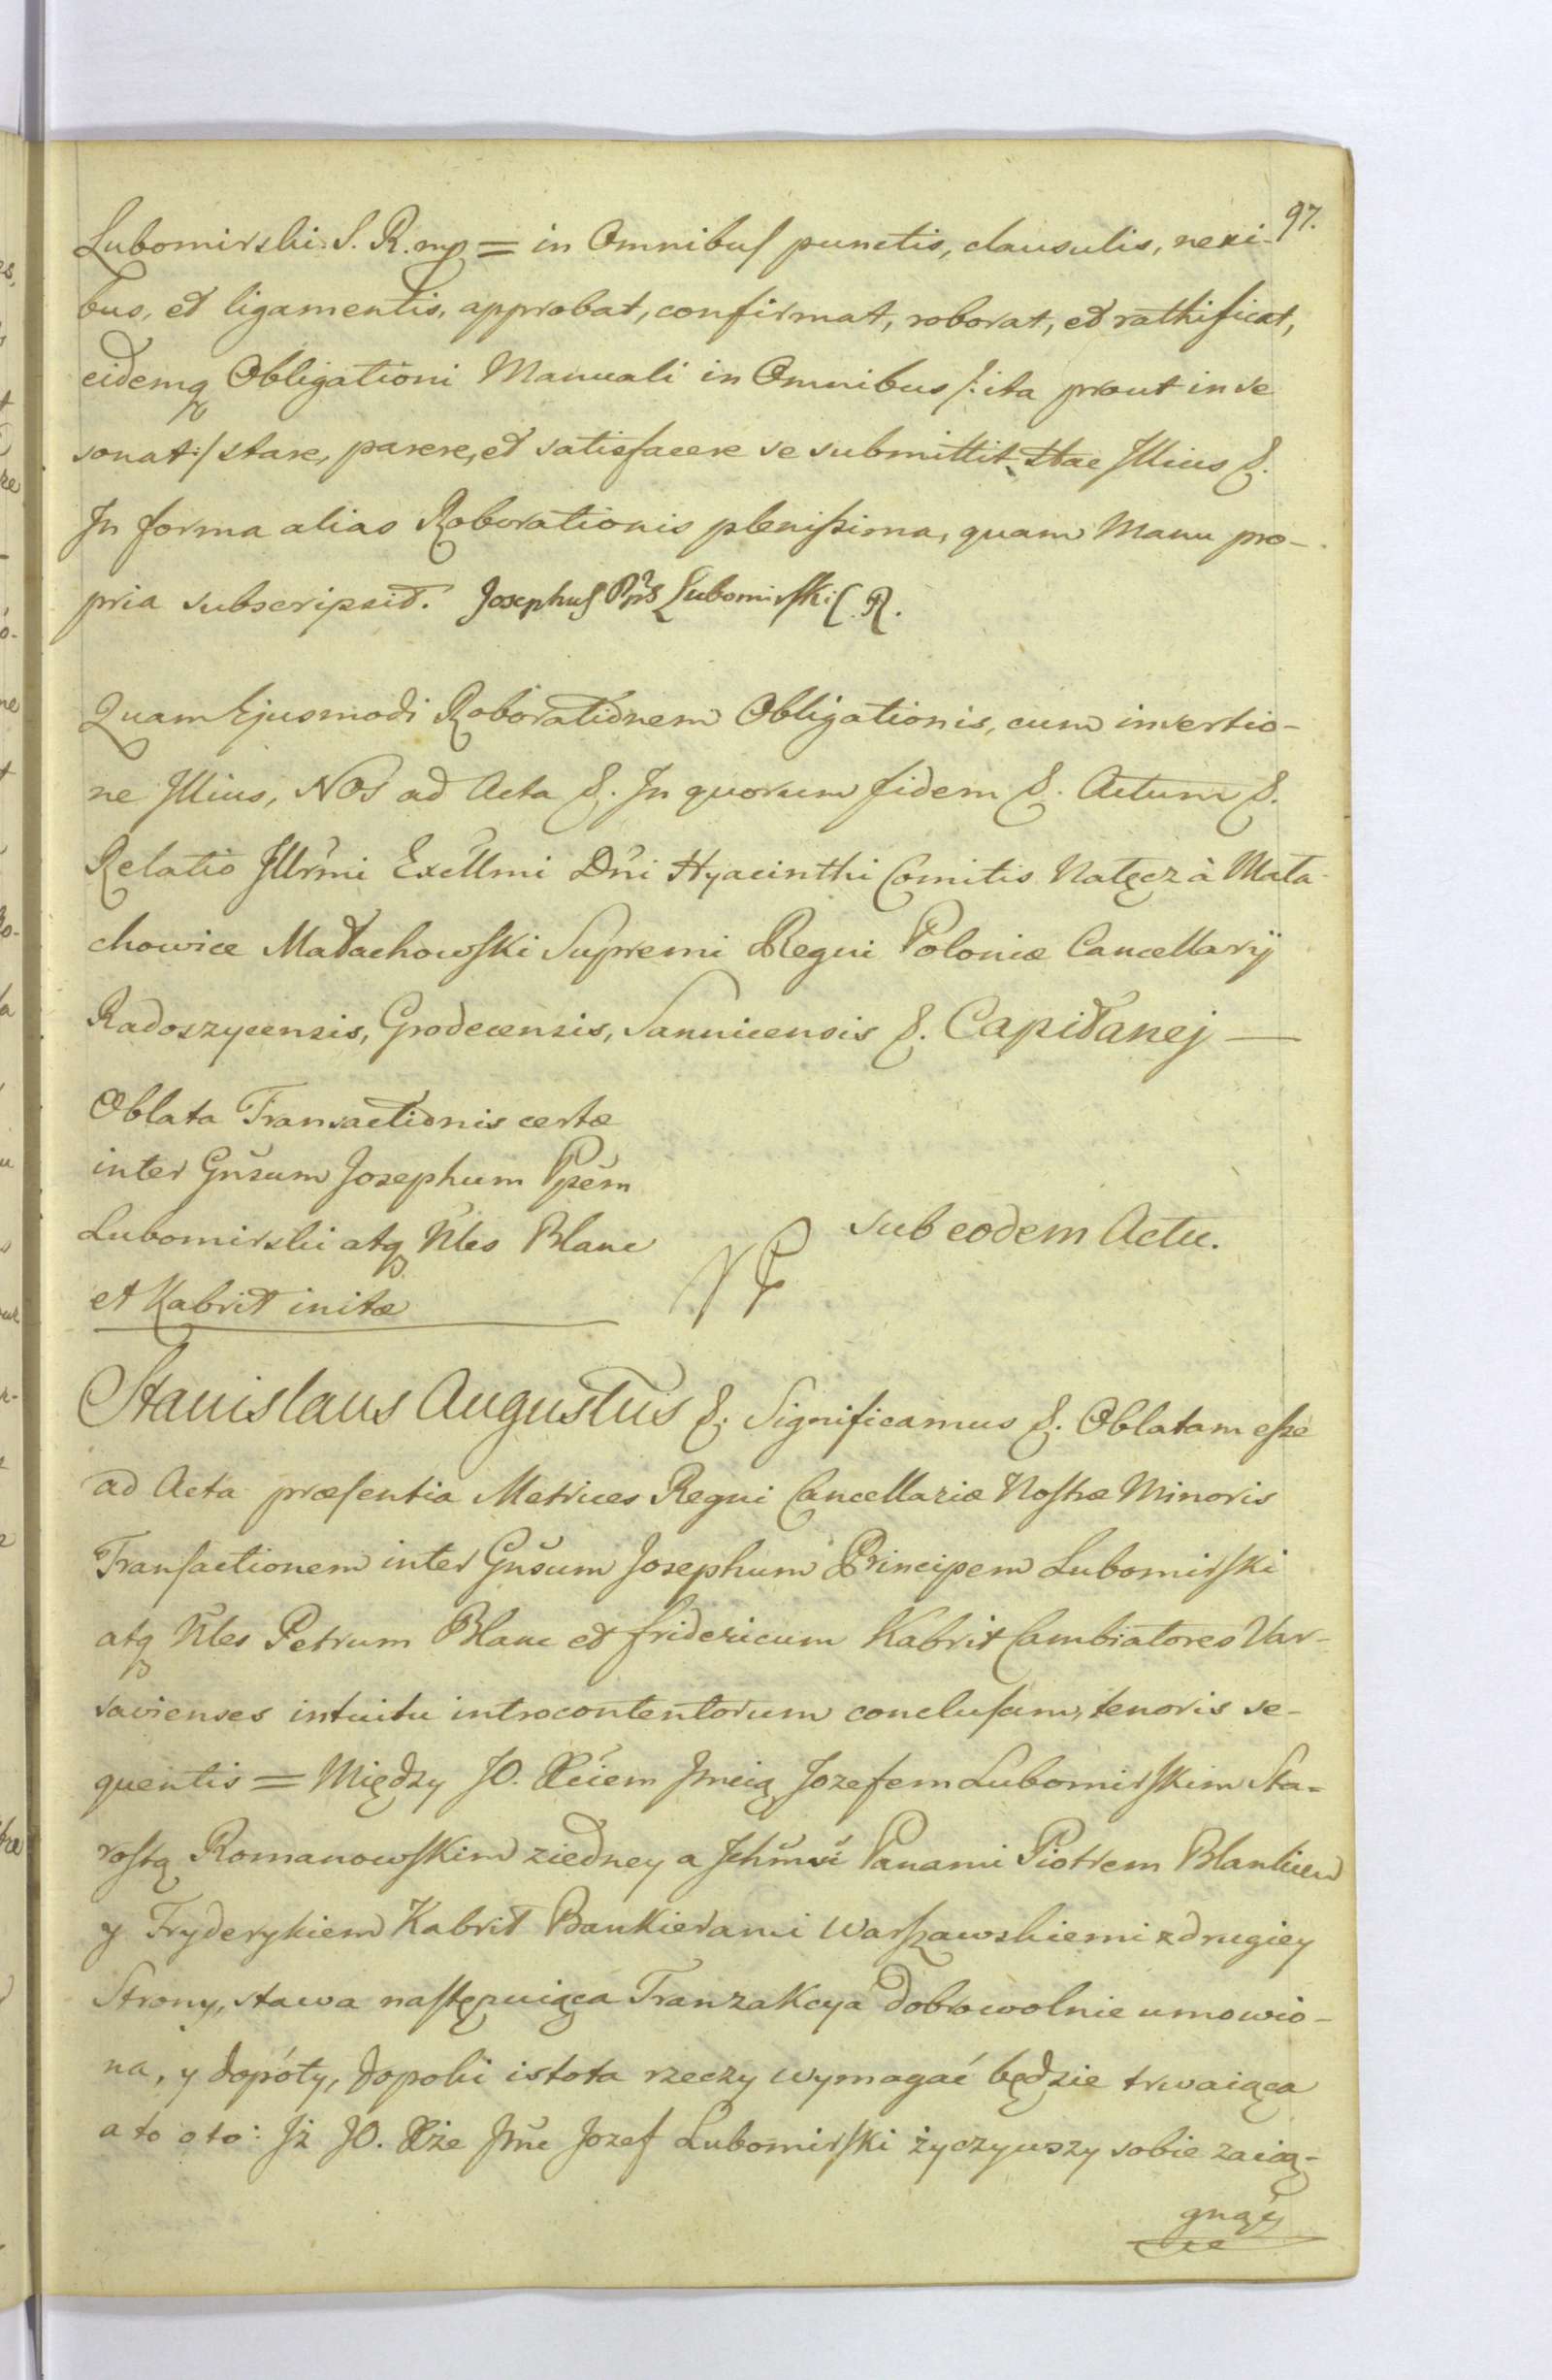 97.
Lubomirski. S. R. mp = in Omnibus punctis, clausulis, nexi-
bus, et ligamentis, approbat, confirmat, roborat, et rathificat,
eidemq Obligationi Manuali in Omnibus /: ita prout in se
sonat :/ stare, parere, et satisfacere se submittit Hac Illius &.
In forma alias Roborationis plenissima, quam Manu pro-
pria subscripsit. Josephus Pps Lubomirski S. R.
Quam Ejusmodi Roborationem Obligationis, cum insertio-
ne Illius, Nos ad Acta &. In quorum fidem &. Actum &.
Relatio Illrmi Excllmi Dni Hyacinthi Comitis Nałęcz à Mała-
chowice Małachowski Supremi Regni Poloniæ Cancellarij
Radoszycensis, Grodecensis, Sannicensis &. Capitanej —
Oblata Transactionis certæ
inter Gnsum Josephum Ppem
Lubomirski atq Nles Blanc
et Kabrit initæ
sub eodem Actu.
Stanislaus Augustus &. Significamus &. Oblatam esse
ad Acta præsentia Metrices Regni Cancellariæ Nostræ Minoris
Transactionem inter Gnsum Josephum Principem Lubomirski
atq Nles Petrum Blanc et Fridericum Kabrit Cambiatores Var-
savienses intuitu introcontentorum conclusam, tenoris se-
quentis = Między JO. Xciem Jmcią Jozefem Lubomirskim Sta-
rostą Romanowskim z iedney a Ichmć Panami Piotrem Blankiem
y Fryderykiem Kabrit Bankierami Warszawskiemi z drugiey
Strony, stawa następuiąca Tranzakcya dobrowolnie umowio-
na, y dopóty, dopoki istota rzeczy wymagać będzie trwaiąca
a to o to: Iż JO. Xże Jmć Jozef Lubomirski życzywszy sobie zaią-
gnąć